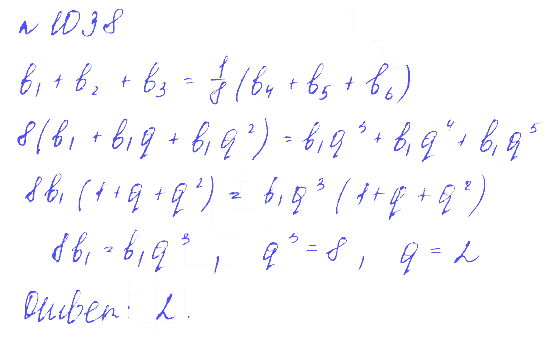 № 1038
b₁ + b₂ + b₃ = 1/8 (b₄ + b₅ + b₆)
8(b₁ + b₁q + b₁q²) = b₁q³ + b₁q⁴ + b₁q⁵
8b₁(1+q+q²) = b₁q³(1+q+q²)
8b₁ = b₁q³, q³ = 8, q = 2
Ответ: 2.